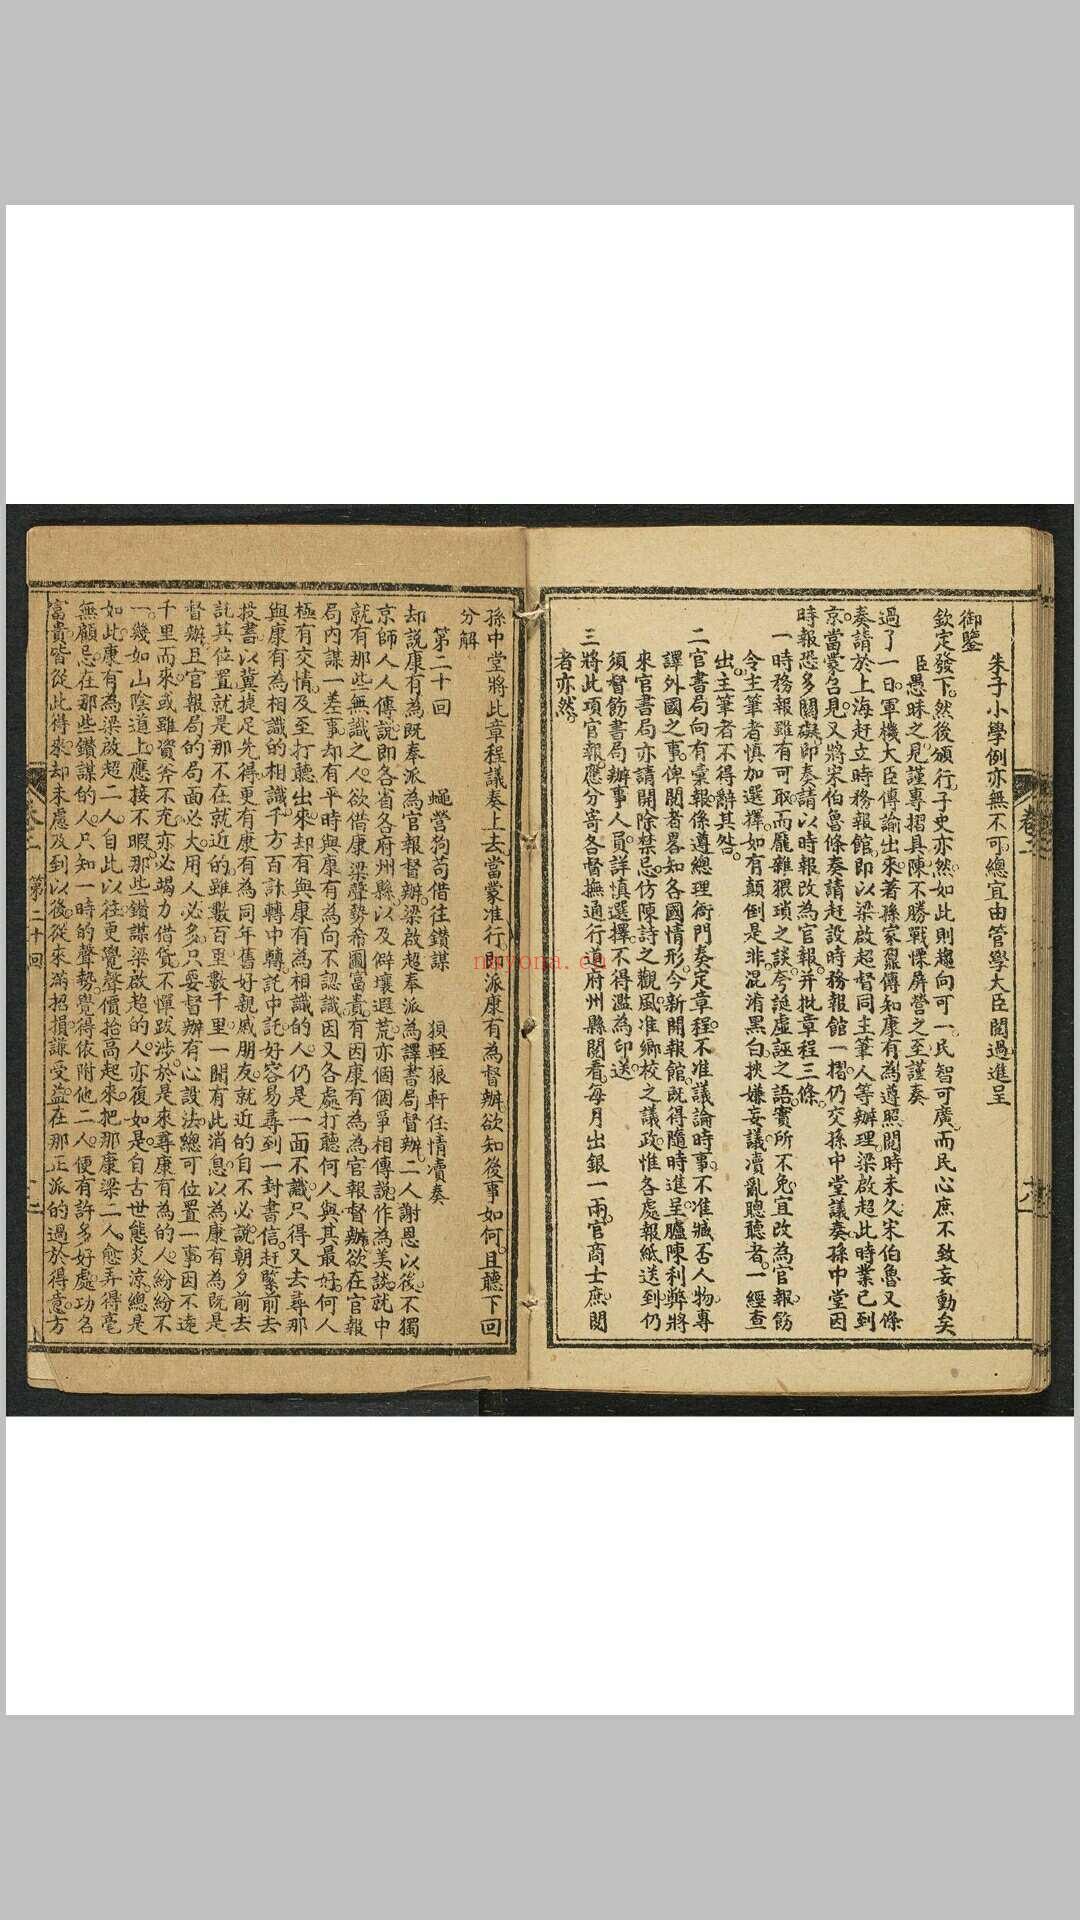 朱子小學例亦無不可總宜由管學大臣閱過進呈
御鑒
欽定發下然後頒行子史亦然如此則趨向可一民智可廣而民心庶不致妄動矣
臣愚昧之見謹專摺具陳不勝戰慄屏營之至謹奏
過了一日軍機大臣傳諭出來著孫家鼐傳知康有為遵照閱時未久宋伯魯又條
奏請於上海赶立時務報館即以梁啟超督同主筆人等辦理梁啟超此時業已到
京當蒙召見又將宋伯魯條奏請赶設時務報館一摺仍交孫中堂議奏孫中堂因
時報恐多關礙即奏請以時報改為官報并批章程三條
一時務報雖有可取而龐雜猥瑣之談夸誕虛誣之語實所不免宜改為官報飭
令主筆者慎加選擇如有顛倒是非混淆黑白挾嫌妄議瀆亂聰聽者一經查
出主筆者不得辭其咎
二官書局向有彙報係遵總理衙門奏定章程不准議論時事不准臧否人物專
譯外國之事俾閱者畧知各國情形今新開報館既得隨時進呈臚陳利弊將
來官書局亦請開除禁忌仿陳詩之觀風准鄉校之議政惟各處報紙送到仍
須督飭書局辦事人員詳慎選擇不得濫為印送
三將此項官報應分寄各督撫通行道府州縣閱看每月出銀一兩官商士庶閱
者亦然
卷二
孫中堂將此章程議奏上去當蒙准行即派康有為督辦欲知後事如何且聽下回
分解
第二十回 蠅營狗苟借往鑽謀 狽輕狼軒任情瀆奏
却說康有為既奉派為官報督辦梁啟超奉派為譯書局督辦二人謝恩以後不獨
京師人人傳說即各省各府州縣以及僻壤遐荒亦個個爭相傳說作為美談就中
就有那些無識之人欲借康梁聲勢希圖富貴有因康有為為官報督辦欲在官報
局內謀一差事却有平時與康有為向不認識因又各處打聽何人與其最好何人
極有交情及至打聽出來却有與康有為相識的人仍是一面不識只得又去尋那
與康有為相識的相識千方百計轉中轉託中託好容易尋到一封書信赶緊前去
投書以冀捷足先得更有康有為同年舊好親戚朋友就近的自不必說朝夕前去
託其位置就是那不在就近的雖數百里數千里一聞有此消息以為康有為既是
督辦且官報局的局面必大用人必多只要督辦有心設法總可位置一事因不遠
千里而來或雖資斧不充亦必竭力借貸不憚跋涉於是來尋康有為的人紛紛不
一幾如山陰道上應接不暇那些鑽謀梁啟超的人亦復如是自古世態炎涼總是
如此康有為梁啟超二人自此以往更覺聲價抬高起來把那康梁二人愈弄得毫
無顧忌在那些鑽謀的人只知一時的聲勢覺得依附他二人便有許多好處功名
富貴皆從此得來却未慮及到以後從來滿招損謙受益在那正派的過於得意方
第二十回
nmyona.cn